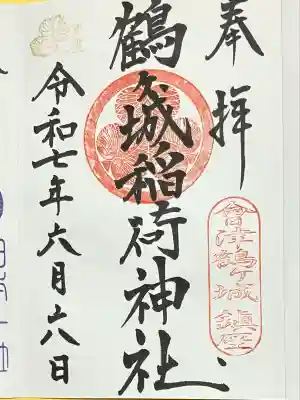 奉拝
鶴ヶ城稲荷神社
會津鶴ヶ城鎮座
令和七年六月十八日